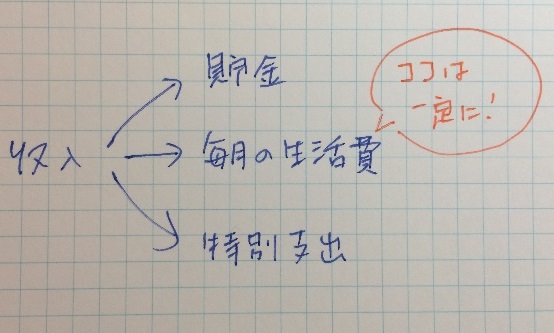 収入
貯金
毎月の生活費
特別支出
ココは
一定に!